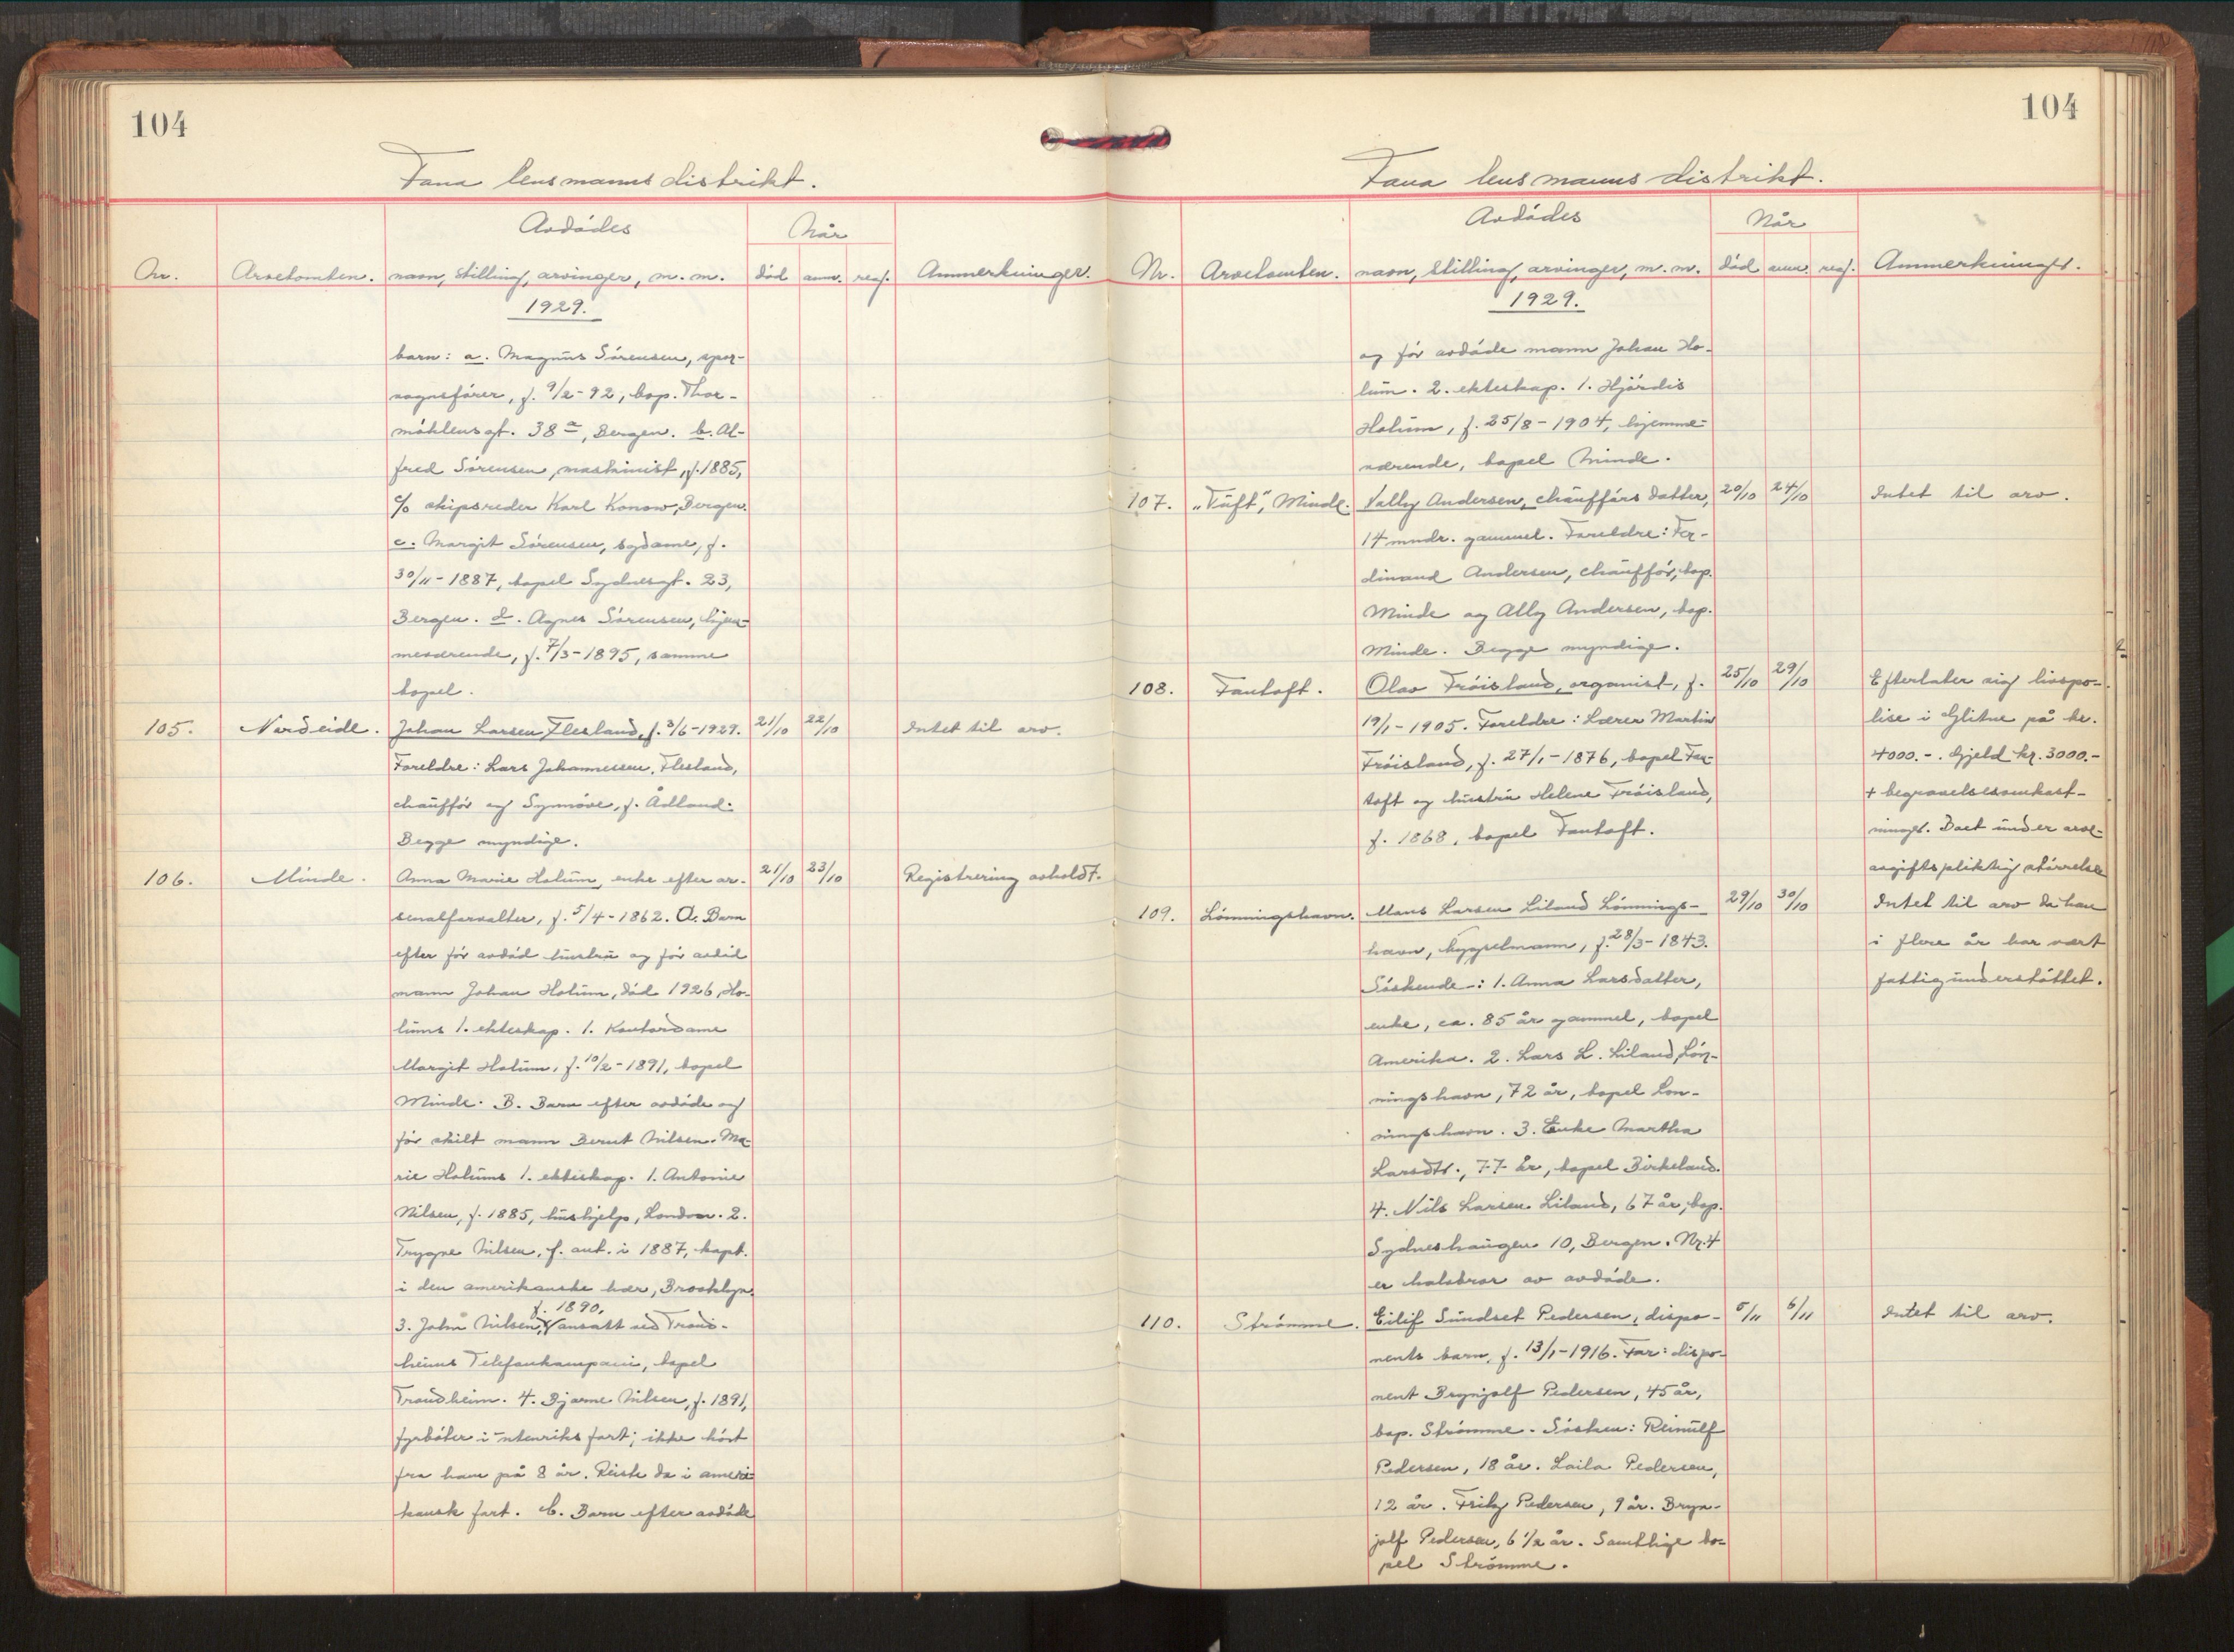 104
Fana lensmannsdistrikt.
Avdødes
Når
Nr. Arvetomten. navn, stilling, arvinger, m. m. død anm. reg. Anmerkninger.
1929.
barn: a. Magnus Sørensen, spor-
vognsfører, f. 9/2-92, bop. Thor-
möhlensgt. 38 a, Bergen. b. Al-
fred Sørensen, maskinist, f. 1885,
c/o skipsreder Karl Konow, Bergen.
c. Margit Sørensen, sydame, f.
30/11-1887, bopel Sydnesgt. 23,
Bergen. d. Agnes Sørensen, hjem-
meværende, f. 7/3-1895, samme
bopel.
105. Nordeide. Johan Larsen Flesland, f. 3/6-1929. 21/10 22/10 Intet til arv.
Foreldre: Lars Johannessen Flesland,
chauffør og Synnøve, f. Ådland.
Begge myndige.
106. Minde. Anna Marie Holum, enke efter ar- 21/10 23/10 Registrering avholdt.
senalforvalter, f. 5/4-1862. A. Barn
efter før avdød hustru og før avdød
mann Johan Holum, død 1926, Ho-
lums 1. ekteskap. 1. Kontordame
Margit Holum, f. 10/2-1891, bopel
Minde. B. Barn efter avdøde og
før skilt mann Bernt Nilsen. Ma-
rie Holums 1. ekteskap. 1. Antonie
Nilsen, f. 1885, hushjelp, London. 2.
Trygve Nilsen, f. ant. i 1887, kapt.
i den amerikanske hær, Brooklyn.
f. 1890,
3. John Nilsen, ansatt ved Trond-
heims Telefonkompani, bopel
Trondheim. 4. Bjarne Nilsen, f. 1891,
fyrbøter i utenriks fart; ikke hørt
fra ham på 8 år. Reiste da i ameri-
kansk fart. C. Barn efter avdøde
104
Fana lensmanns distrikt.
Avdødes
Når
Nr. Arvetomten. navn, stilling, arvinger, m. m. død anm. reg. Anmerkninger.
1929.
og før avdøde mann Johan Ho-
lum. 2. ekteskap. 1. Hjørdis
Holum, f. 25/8-1904, hjemme-
værende, bopel Minde.
107. "Tuft", Minde. Vally Andersen, chaufførs datter, 20/10 24/10 Intet til arv.
14 mndr. gammel. Foreldre: Fer-
dinand Andersen, chauffør, bop.
Minde og Ally Andersen, bop.
Minde. Begge myndige.
108. Fantoft. Olav Frøisland, organist, f. 25/10 29/10 Efterlater sig livspo-
19/1-1905. Foreldre: Lærer Martin lise i Glitne på kr.
Frøisland, f. 27/1-1876, bopel Fan- 4000.-. Gjeld kr. 3000.-
toft og hustru Helene Frøisland, + begravelsesomkost-
f. 1868, bopel Fantoft. ninger. Boet under arve-
avgiftspliktig størrelse
109. Lønningshavn. Mons Larsen Liland Lønnings- 29/10 30/10 Intet til arv da han
havn, hyggelmann, f. 28/3-1843. i flere år har vært
Søskende-: 1. Anna Larsdatter, fattigunderstøttet.
enke, ca. 85 år gammel, bopel
Amerika. 2. Lars L. Liland, Løn-
ningshavn, 72 år, bopel Løn-
ningshavn. 3. Enke Martha
Larsdtr., 77 år, bopel Birkeland.
4. Nils Larsen Liland, 67 år, bop.
Sydneshaugen 10, Bergen. Nr. 4
er halvbror av avdøde.
110. Strømme. Eilif Sundset Pedersen, dispo- 5/11 6/11 Intet til arv.
nents barn, f. 13/1-1916. Far: dispo-
nent Brynjolf Pedersen, 45 år,
bop. Strømme. Søsken: Reinulf
Pedersen, 18 år. Laila Pedersen,
12 år. Fritz Pedersen, 9 år. Bryn-
jolf Pedersen, 6 1/2 år. Samtlige bo-
pel Strømme.